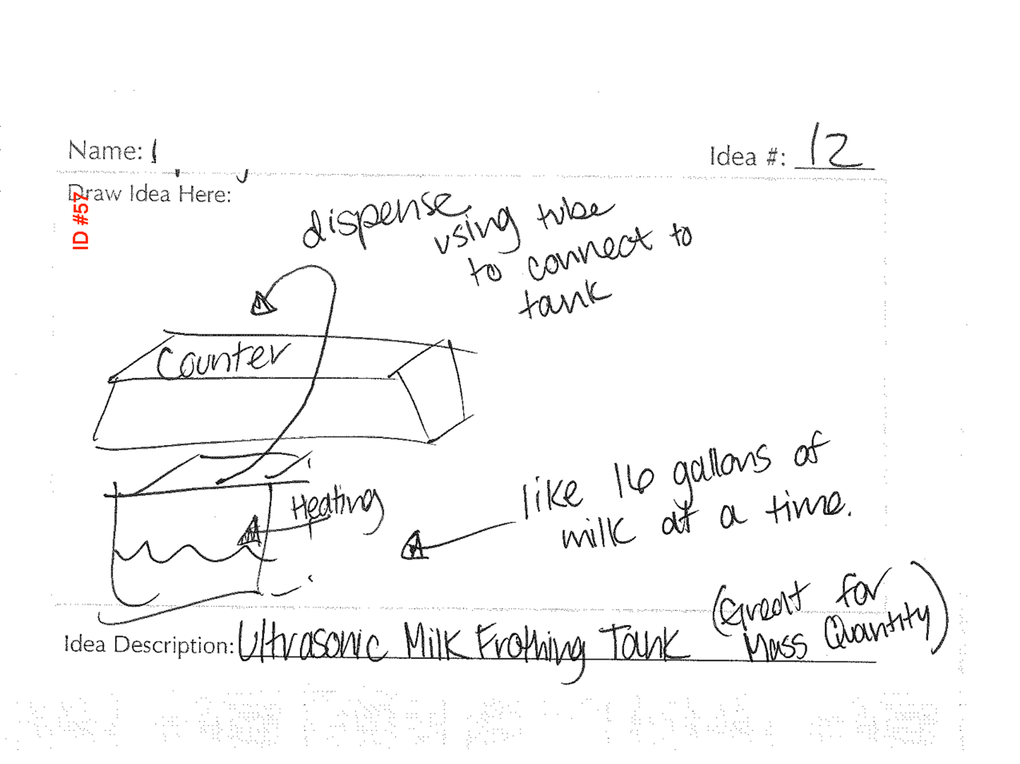 Name:
Idea #: 12
Draw Idea Here:
ID #57
dispense using tube
to connect to
tank
Counter
Heating
like 16 gallons of
milk at a time.
Idea Description: Ultrasonic Milk Frothing Tank
(Great for
Mass Quantity)